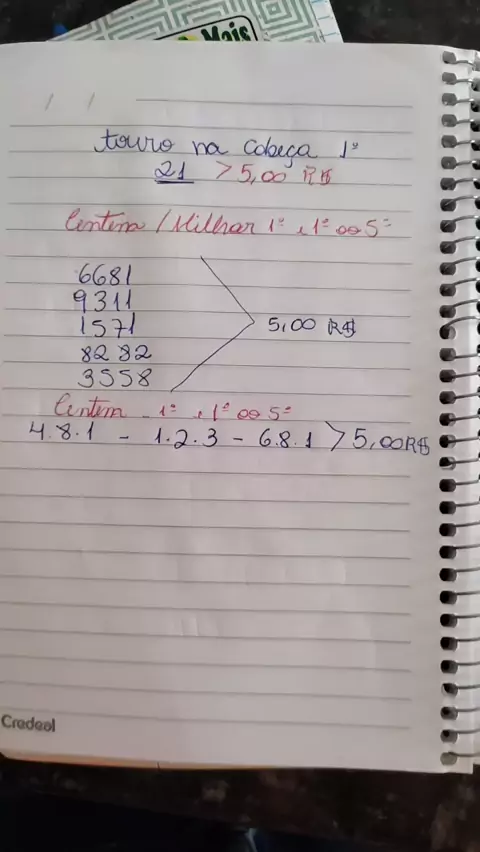 Mais
touro na cabeça 1º
21 > 5,00 R$
Centena / Milhar 1º e 1º ao 5º
6681
9311
1571
8282
3558
5,00 R$
Centena 1º e 1º ao 5º
4.8.1 - 1.2.3 - 6.8.1 > 5,00 R$
Credeal